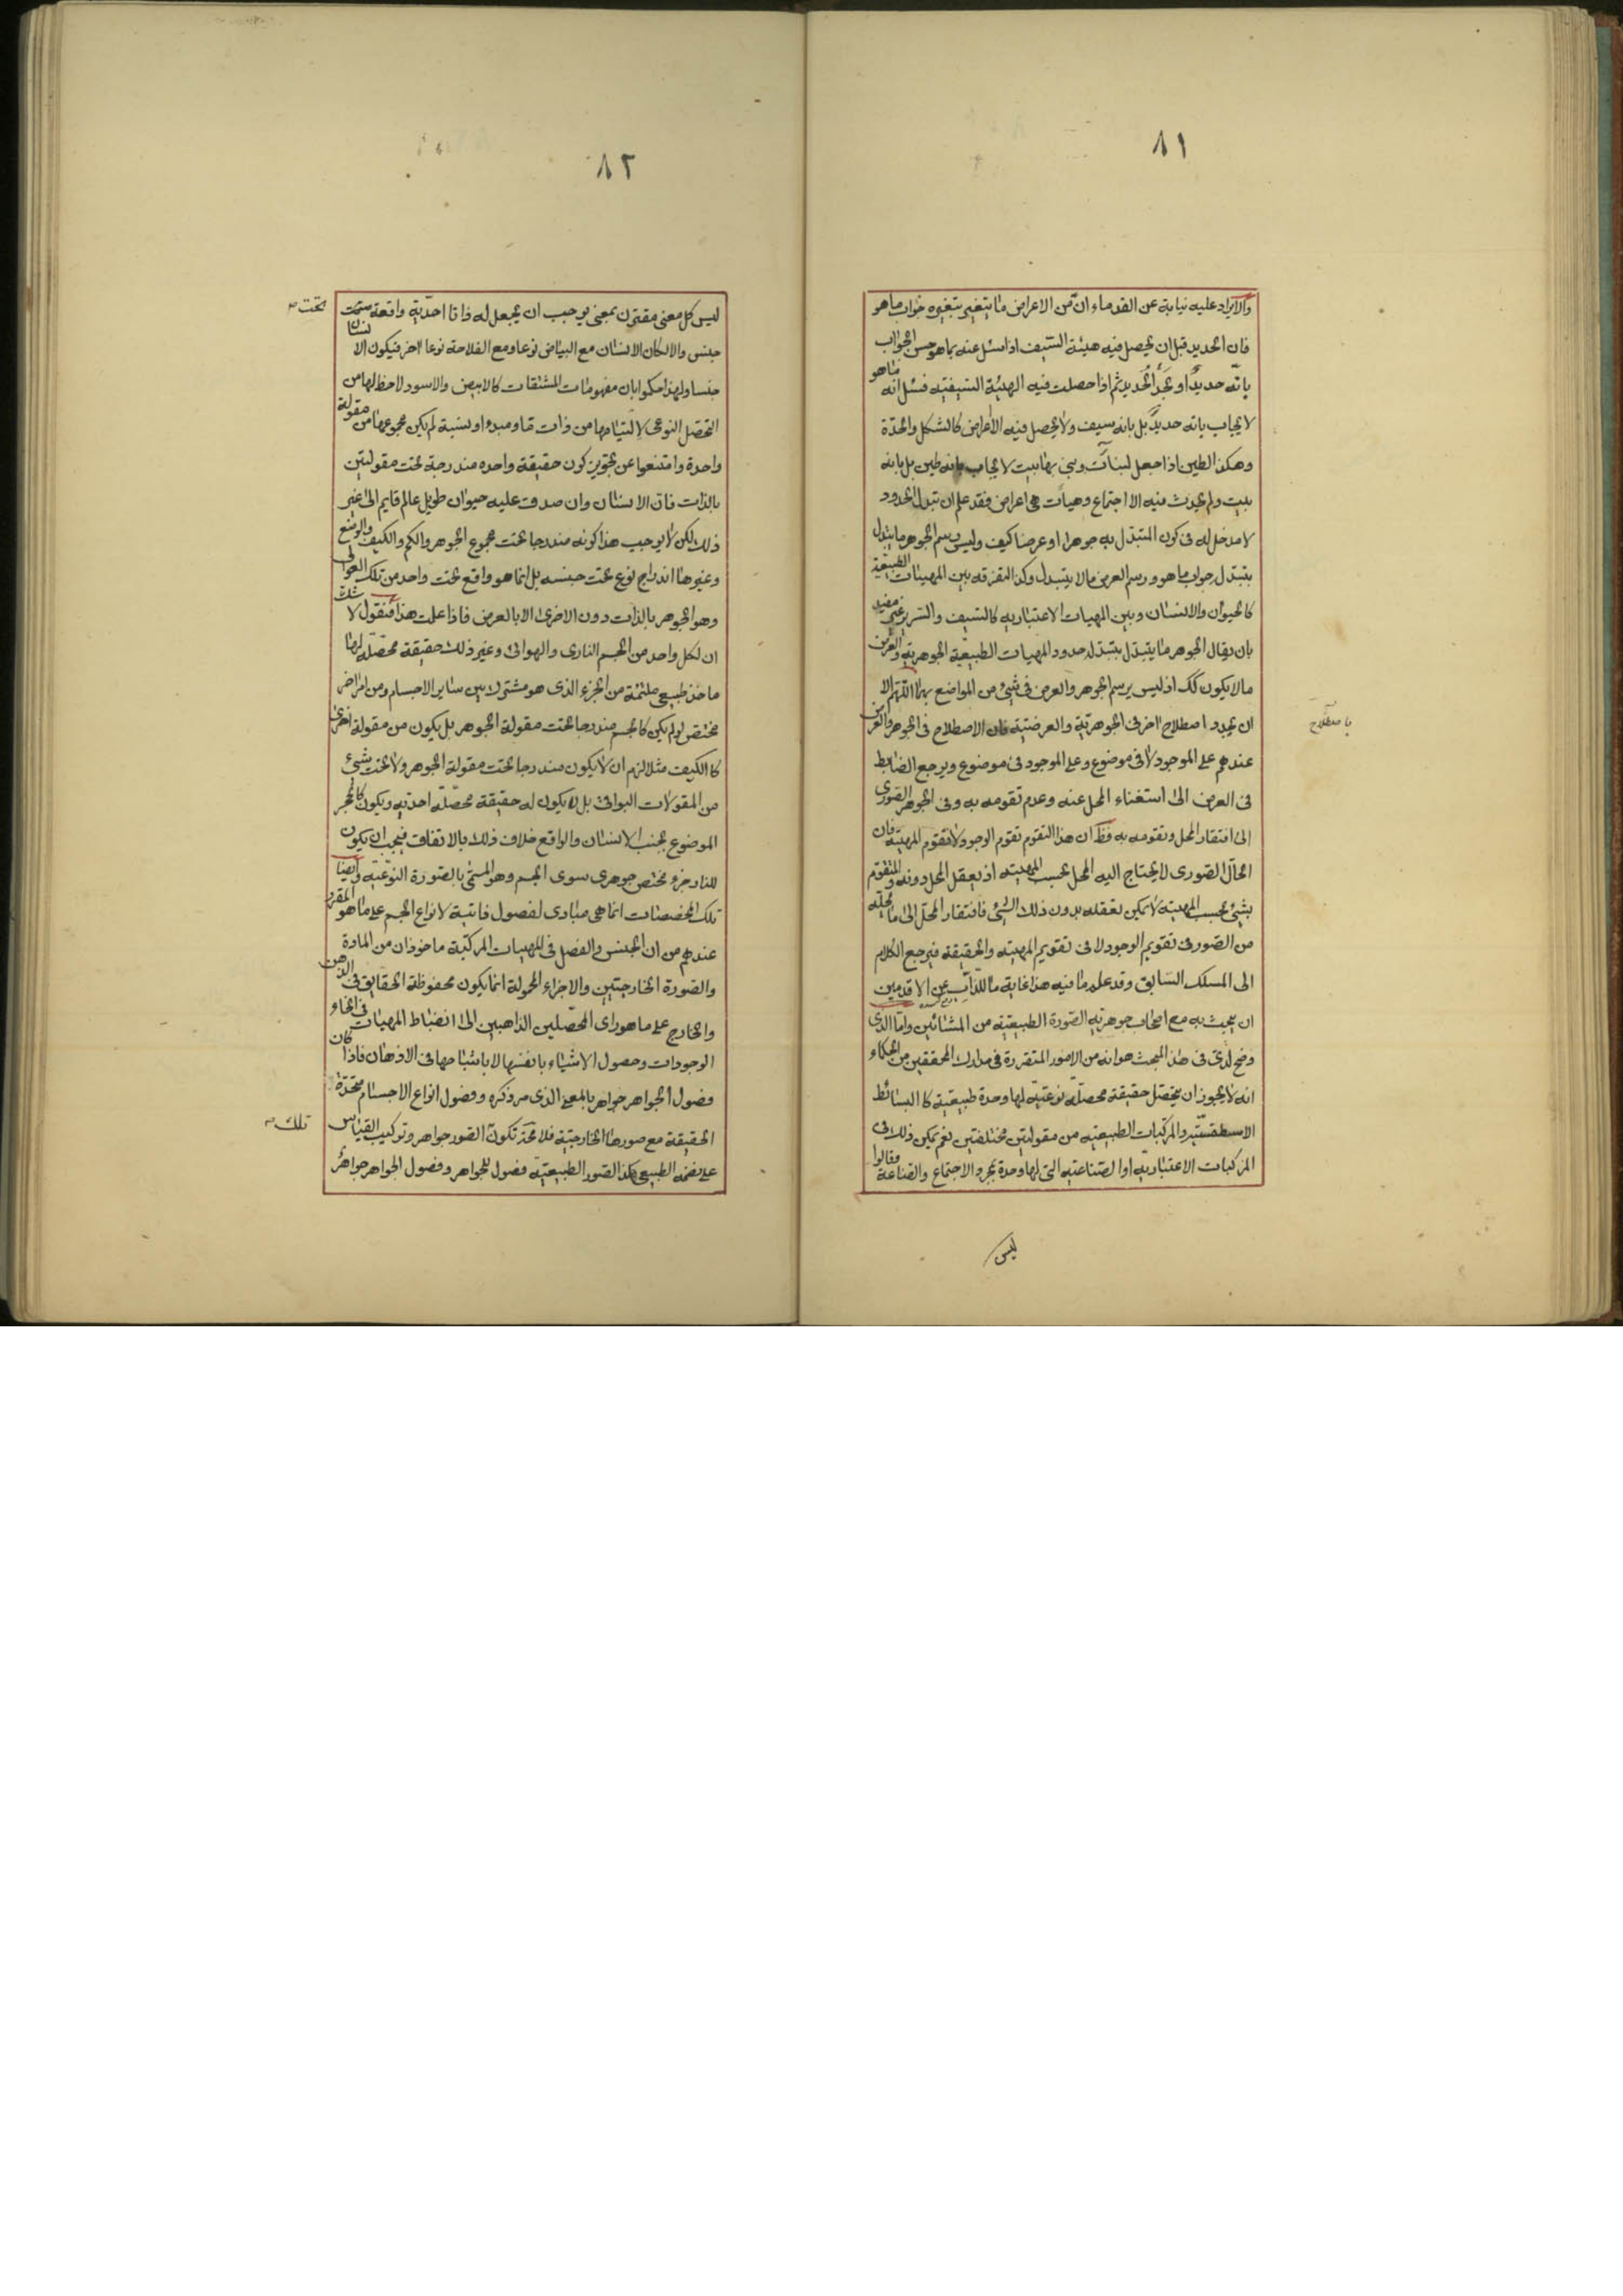 ٨١
والايراد عليه نيابة عن القدماء ان من الاعراض ما يتغير بتغيره جواب ما هو
فان الحديد قبل ان يحصل فيه هيئة السيف اذا سئل عنه بما هو حسن الجواب
بانه حديد او بحد الحديد ثم اذا حصلت فيه الهيئة السيفية فسئل انه ما هو
لا يجاب بانه حديد بل بانه سيف ولا يحصل فيه الا اعراض كالشكل والحدة
وهكذا الطين اذا جعل لبنات وبني بها بيت لا يجاب بانه طين بل بانه
بيت ولم يحدث فيه الا اجتماع وهيات هى اعراض فقد علم ان تبدل الحدود
لا مدخل له فى كون المتبدل به جوهرا او عرضا كيف وليس رسم الجوهر ما يتبدل
بتبدل جواب ما هو ورسم العرض ما لا يتبدل وكذا التفرقة بين المهيات الطبيعية
كالحيوان والانسان وبين المهيات الاعتبارية كالسيف والسرير غير مفيد
بان يقال الجوهر ما يتبدل بتبدله حدود المهيات الطبيعية الجوهرية والعرض
ما لا يكون كك اذ ليس يرسم الجوهر والعرض فى شئ من المواضع بهذا اللهم الا
ان يجدد اصطلاح اخر فى الجوهرية والعرضية فان الاصطلاح فى الجوهر والعرض
باصطلاح
عندهم على الموجود لا فى موضوع وعلى الموجود فى موضوع ويرجع الضابط
فى العرض الى استغناء المحل عنه وعدم تقومه به وفى الجوهر الصورى
الى افتقار المحل وتقومه به فظ ان هذا التقوم تقوم الوجود لا تقوم المهية فان
الحال الصورى لا يحتاج اليه المحل بحسب المهية اذ يعقل المحل دونه والمتقوم
بشئ بحسب المهية لا يمكن تعقله بدون ذلك الشئ فافتقار المحل الى ما يحله
من الصور فى تقويم الوجود لا فى تقويم المهية والحقيقة فيرجع الكلام
الى المسلك السابق وقد علم ما فيه هذا غاية ما للذاب عن الاقدمين
ان يبحث به مع اصحاب جوهرية الصورة الطبيعية من المشائين واما الذى
وضح لدى فى هذا المبحث هو انه من الامور المتقررة فى مدارك المحققين من الحكماء
انه لا يجوز ان يتحصل حقيقة محصلة نوعية لها وحدة طبيعية كالبسائط
الاسطقسية والمركبات الطبيعية من مقولتين مختلفتين نعم يمكن ذلك فى
المركبات الاعتبارية او الصناعية التى لها وحدة بمجرد الاجتماع والصناعة وقالوا
ليس
٨٢
ليس كل معنى مقترن بمعنى يوجب ان يجعل له ذاتا احدية واقعة تحت
تحت
جنس والا لكان الانسان مع البياض نوعا ومع الفلاحة نوعا اخر فيكون الانسان
جنسا ولهذا حكموا بان مفهومات المشتقات كالابيض والاسود لا حظ لها من
التحصل النوعى لالتيامها من ذات ما ومبدء او نسبة لم يكن مجموعها من مقولة
واحدة وامتنعوا عن تجويز كون حقيقة واحده مندرجة تحت مقولتين
بالذات فان الانسان وان صدق عليه حيوان طويل عالم قايم الى غير
ذلك لكن لا يوجب هذا كونه مندرجا تحت مجموع الجوهر والكم والكيف والوضع
وغيرها اندراج نوع تحت جنسه بل انما هو واقع تحت واحد من تلك العوالى
وهو الجوهر بالذات دون الاخرى الا بالعرض فاذا علمت هذا فنقول لا شك
ان لكل واحد من الجسم النارى والهوائى وغير ذلك حقيقة محصلة لها
ماخذ طبيعى ملتئمة من الجزء الذى هو مشترك بين ساير الاجسام ومن امر اخر
مختص لو لم يكن كالجسم مندرجا تحت مقولة الجوهر بل يكون من مقولة اخرى
كالكيف مثلا لزم ان لا يكون مندرجا تحت مقولة الجوهر ولا تحت شئ
من المقولات البواقى بل لا يكون له حقيقة محصلة احدية ويكون كالحجر
الموضوع بجنب الانسان والواقع خلاف ذلك بالاتفاق فيجب ان يكون
للنار جزء مختص جوهرى سوى الجسم وهو المسمى بالصورة النوعية وايضا
تلك المخصصات انما هى مبادى لفصول ذاتية لانواع الجسم على ما هو المقرر
عندهم من ان الجنس والفصل فى المهيات المركبة ماخوذان من المادة
والصورة الخارجيتين والاجزاء المحمولة انما يكون محفوظة الحقايق فى الذهن
والخارج على ما هو راى المحصلين الذاهبين الى انضباط المهيات فى انحاء
الوجودات وحصول الاشياء بانفسها لا باشباحها فى الاذهان فاذا كان
فصول الجواهر جواهر بالمعنى الذى مر ذكره وفصول انواع الاجسام متحدة
الحقيقة مع صورها الخارجية فلا محة تكون الصور جواهر وتركيب القياس
تلك
على نضمه الطبيعى هكذا الصور الطبيعية فصول للجواهر وفصول الجواهر جواهر